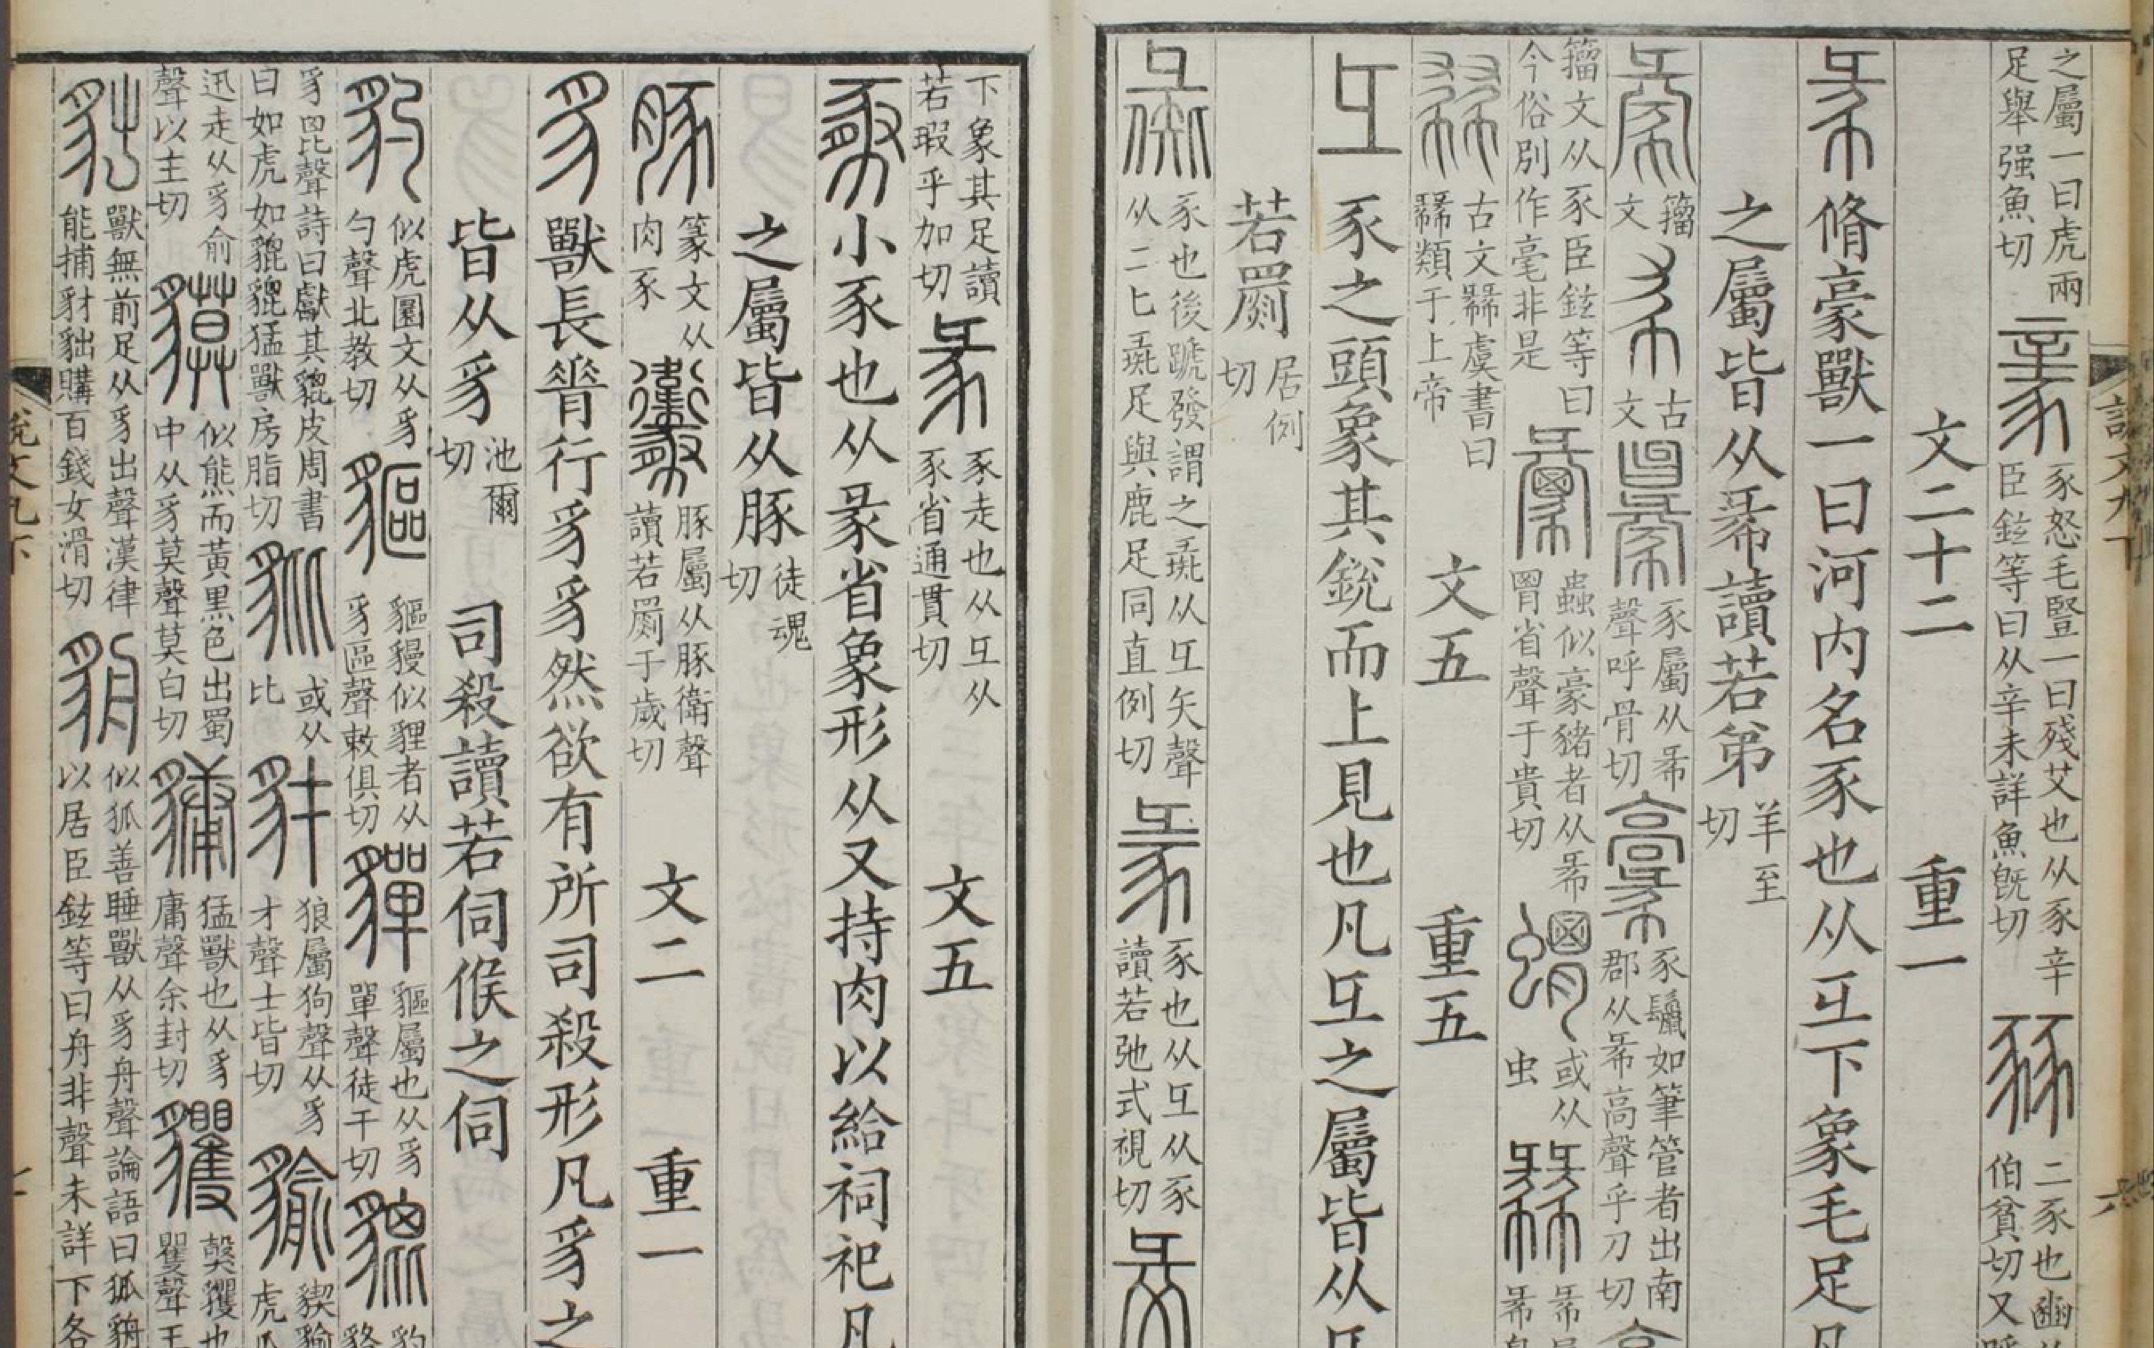 之屬一曰虎兩足舉强魚切 豙 豕怒毛豎一曰殘艾也从豕辛臣鉉等曰从辛未詳魚旣切 豩 二豕也豳 伯貧切又
文二十二 重一
㣇 脩豪獸一曰河内名豕也从彑下象毛足凡
之屬皆从㣇讀若弟羊至切
籒文 古文 豕屬从㣇聲呼骨切 豕鬣如筆管者出南郡从㣇高聲乎刀切
籒文从豕臣鉉等曰今俗別作毫非是 彙 蟲似豪豬者从㣇胃省聲于貴切 蝟 或从虫
古文虞書曰類于上帝 文五 重五
彑 豕之頭象其銳而上見也凡彑之屬皆从彑
若罽居例切
彘 豕也後蹏發謂之彘从彑矢聲从二匕彘足與鹿足同直例切 豕也从彑从豕讀若弛式視切
下象其足讀若瑕乎加切 彖 豕走也从彑从豕省通貫切 文五
小豕也从彖省象形从又持肉以給祠祀凡
之屬皆从豚徒魂切
豚 篆文从肉豕 豚屬从豚衛聲讀若罽于歲切 文二 重一
豸 獸長𦟝行豸豸然欲有所司殺形凡豸之
皆从豸池爾切 司殺讀若伺候之伺
豹 似虎圜文从豸勺聲北教切 貙 貙獌似貍者从豸區聲敕俱切 貚 貙屬也从豸單聲徒干切 貔 豹
豸𣬉聲詩曰獻其貔皮周書曰如虎如貔貔猛獸房脂切 豼 或从比 豺 狼屬狗聲从豸才聲士皆切 貐 猰貐 虎爪
迅走从豸俞聲以主切 貘 似熊而黃黑色出蜀中从豸莫聲莫白切 𧳩 猛獸也从豸庸聲余封切 玃 㺉玃也 矍聲王
貀 獸無前足从豸出聲漢律能捕豺貀購百錢女滑切 貈 似狐善睡獸从豸舟聲論語曰狐貈 以居臣鉉等曰舟非聲未詳下各
說文九下 六
說文九下